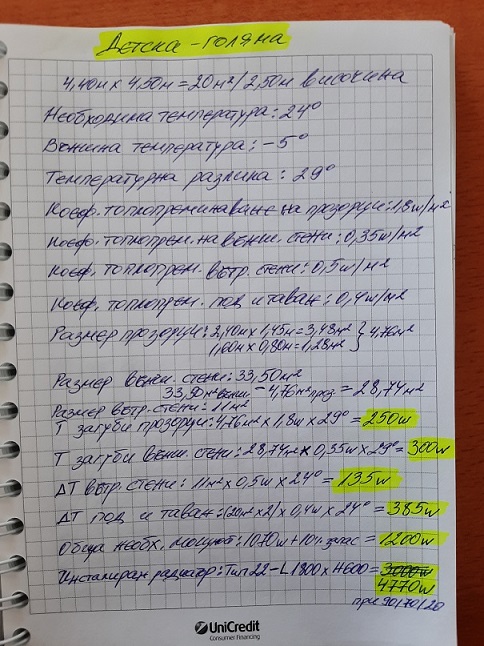 Детска - голяма
4,40м x 4,50м = 20м² / 2,50м височина
Необходима температура: 24°
Външна температура: -5°
Температурна разлика: 29°
Коеф. топлопреминаване на прозорци: 1,8w/м²
Коеф. топлопрем. на външ. стени: 0,35w/м²
Коеф. топлопрем. вътр. стени: 0,5w/м²
Коеф. топлопрем. под и таван: 0,4w/м²
Размер прозорци: 2,40м x 1,45м = 3,48м² } 4,76м²
1,60м x 0,80м = 1,28м²
Размер външ. стени: 33,50м²
33,50м² външ - 4,76м² проз = 28,74м²
Размер вътр. стени: 11м²
Т загуби прозорци: 4,76м² x 1,8w x 29° = 250w
Т загуби външ. стени: 28,74м² x 0,35w x 29° = 300w
ΔT вътр. стени: 11м² x 0,5w x 24° = 135w
ΔT под и таван: (20м² x 2) x 0,4w x 24° = 385w
Обща необх. мощност: 1070w + 10% запас = 1200w
Инсталиран радиатор: Тип 22 - L1800 x H600 = 3000w
4770w
при 90/70/20
UniCredit
Consumer Financing